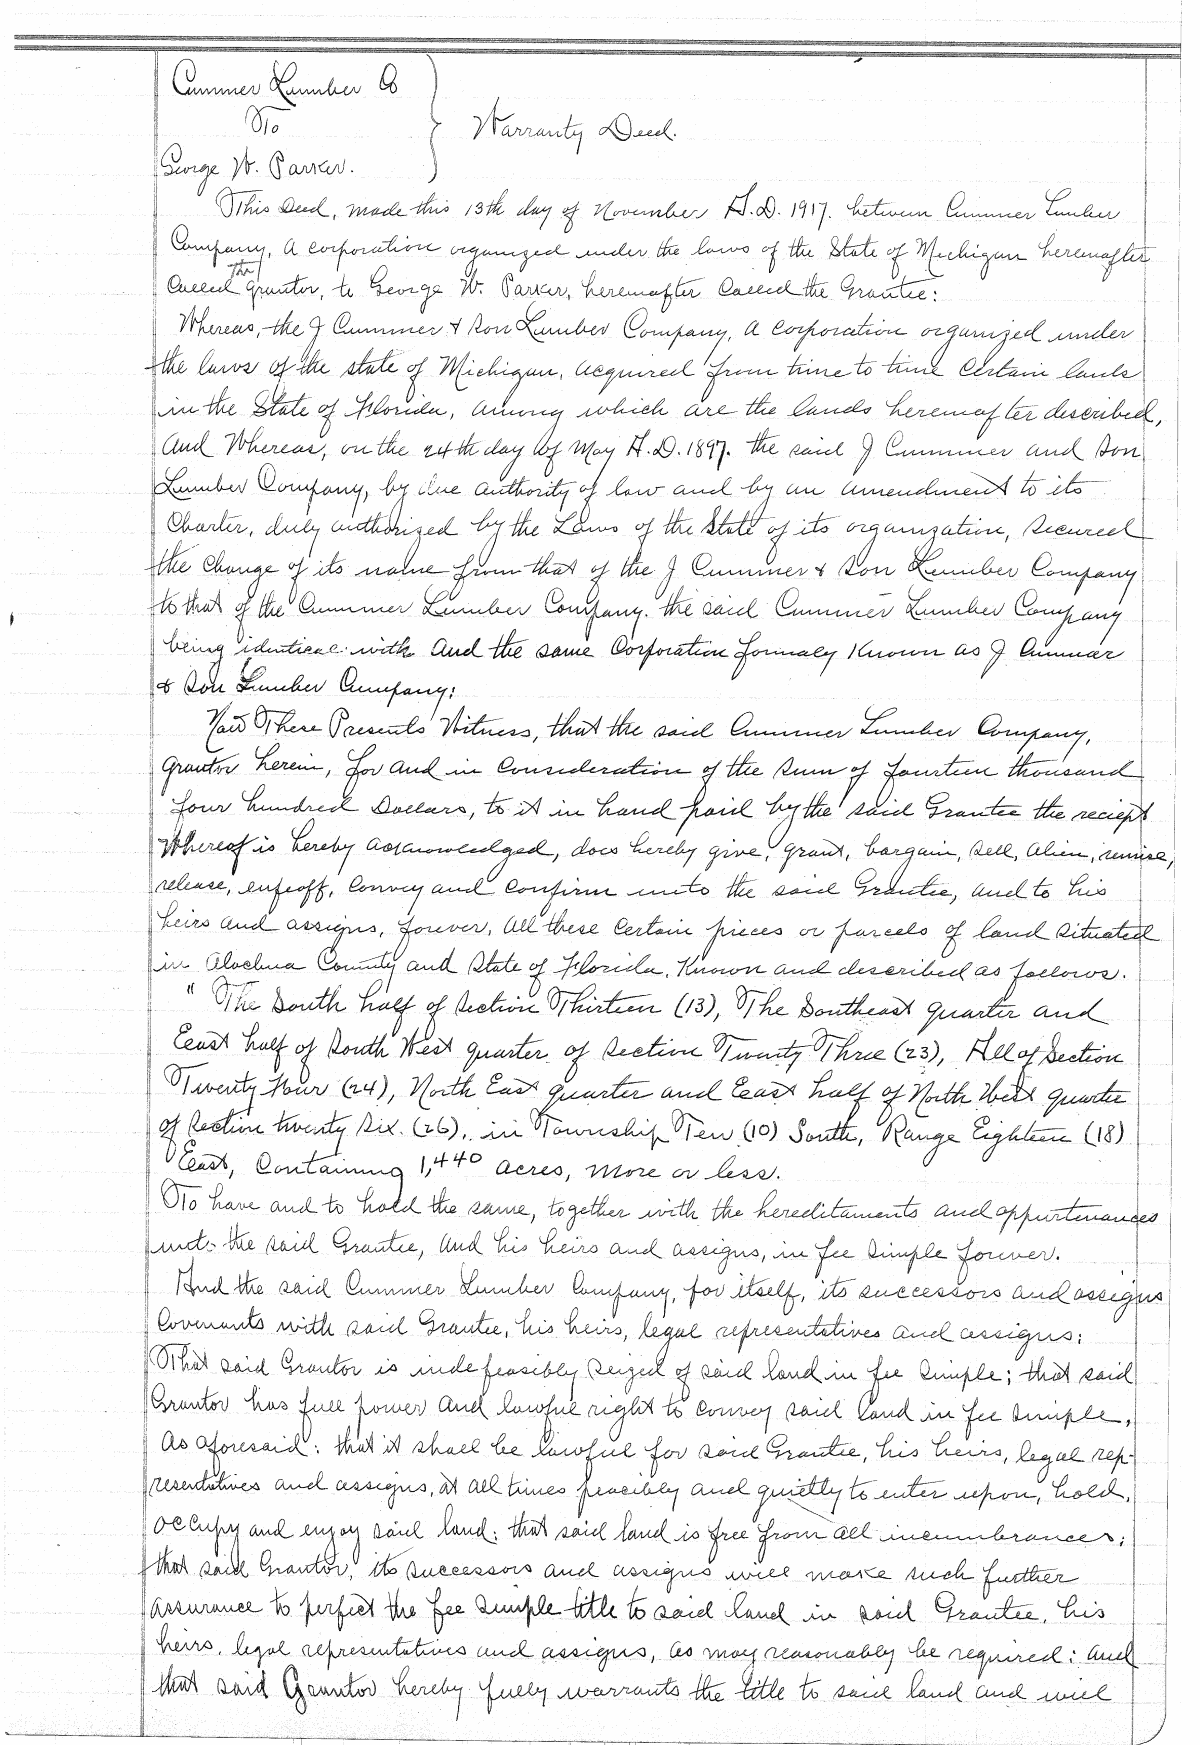 Cummer Lumber Co
To
Warranty Deed.
George W. Parker.
This Deed, made this 13th day of November A.D. 1917. between Cummer Lumber
Company, a corporation organized under the laws of the State of Michigan hereinafter
called the grantor, to George W. Parker, hereinafter called the Grantee:
Whereas, the J Cummer & Son Lumber Company, a corporation organized under
the laws of the state of Michigan, acquired from time to time certain lands
in the State of Florida, among which are the lands hereinafter described,
And Whereas, on the 24th day of May A.D. 1897. the said J Cummer and Son
Lumber Company, by due authority of law and by an amendment to its
Charter, duly authorized by the Laws of the State of its organization, secured
the change of its name from that of the J Cummer & Son Lumber Company
to that of the Cummer Lumber Company. the said Cummer Lumber Company
being identical with and the same Corporation formaly Known as J Cummer
& Son Lumber Company:
Now These Presents Witness, that the said Cummer Lumber Company,
grantor herein, for and in consideration of the sum of fourteen thousand
four hundred Dollars, to it in hand paid by the said Grantee the reciept
Whereof is hereby acknowledged, does hereby give, grant, bargain, sell, alien, remise,
release, enfeoff, convey and confirm unto the said Grantee, and to his
heirs and assigns, forever, all these certain pieces or parcels of land situated
in Alachua County and State of Florida, Known and described as follows.
" The South half of Section Thirteen (13), The Southeast quarter and
East half of South West quarter of Section Twenty Three (23), All of Section
Twenty Four (24), North East quarter and East half of North West quarter
of Section twenty Six. (26), in Township Ten (10) South, Range Eighteen (18)
East, Containing 1,440 acres, more or less.
To have and to hold the same, together with the hereditaments and appurtenances
unto the said Grantee, and his heirs and assigns, in fee simple forever.
And the said Cummer Lumber Company, for itself, its successors and assigns
Covenants with said Grantee, his heirs, legal representatives and assigns:
That said Grantor is indefeasibly seized of said land in fee simple; that said
Grantor has full power and lawful right to convey said land in fee simple,
as aforesaid: that it shall be lawful for said Grantee, his heirs, legal rep-
resentatives and assigns, at all times peacibly and quietly to enter upon, hold,
occupy and enjoy said land: that said land is free from all incumbrances;
that said Grantor, its successors and assigns will make such further
assurance to perfect the fee simple title to said land in said Grantee, his
heirs, legal representatives and assigns, as may reasonably be required: and
that said Grantor hereby fully warrants the title to said land and will